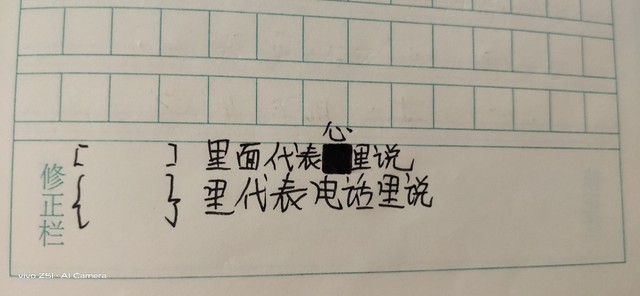 心
[ ] 里面代表里说
{ } 里代表电话里说
修正栏
vivo Z5i · AI Camera